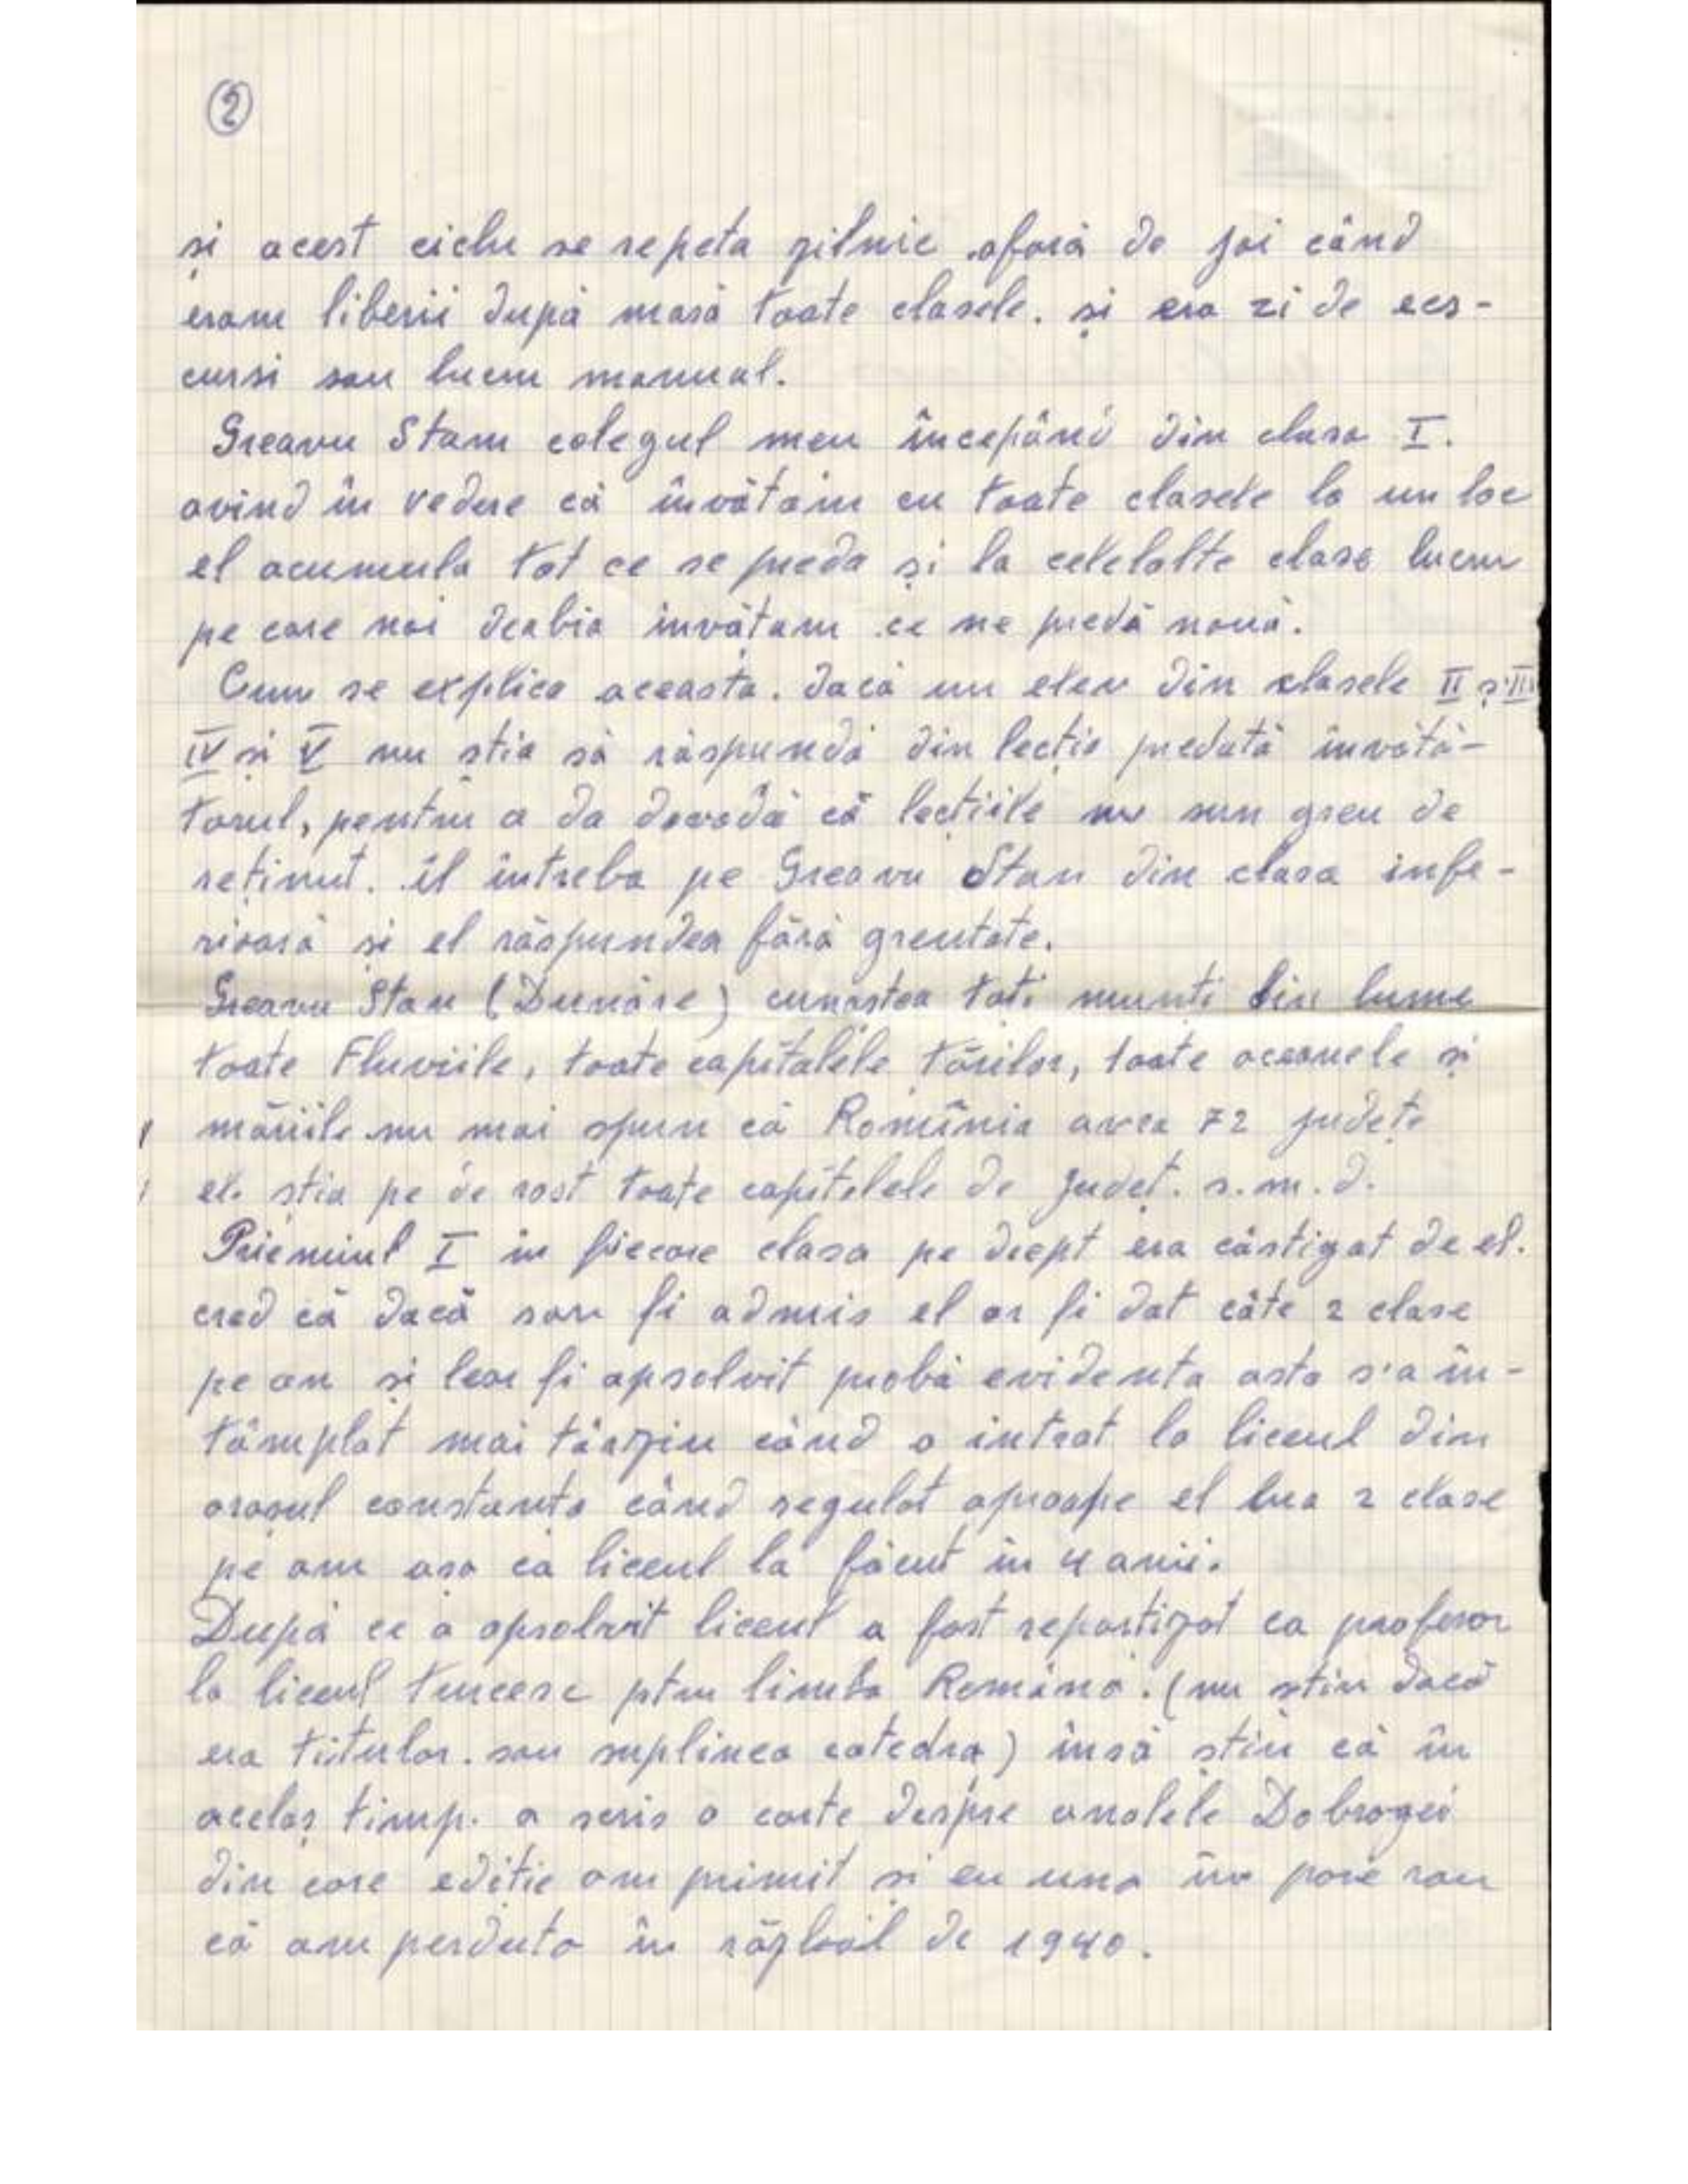 2
și acest ciclu se repeta zilnic afară de joi când
eram liberii după masă toate clasele. și era zi de ecs-
cursi sau lucru manual.
Greavu Stam colegul meu începând din clasa I.
avind în vedere că învătam cu toate clasele la un loc
el acumula tot ce se preda și la celelalte clase lucru
pe care noi deabia invătam ce ne predă nouă.
Cum se explica aceasta. dacă un elev din clasele II și III
IV și V nu stia să răspundă din lecția predată învătă-
torul, pentru a da dovodă că lectiile nu sun greu de
reținut. îl intreba pe Greavu Stan din clasa infe-
rioară și el răspundea fără greutate.
Greavu Stan (Dunăre) cunostea toti munti din lume
toate Fluviile, toate capitalele țărilor, toate oceanele și
măriile nu mai spun că Romînia avea 72 județe
el. știa pe de rost toate capitalele de județ. s.m.d.
Priemiul I in fiecare clasa pe drept era câstigat de el.
cred că dacă sar fi admis el ar fi dat câte 2 clase
pe an și lear fi apsolvit probă evidenta asta s'a în-
tâmplat mai târziu când a intrat la liceul din
orasul constanta când regulat aproape el lua 2 clase
pe am asa că liceul la făcut în 4 anii.
După ce a apsolvit liceul a fost repartizat ca profesor
la liceul turcesc ptru limba Română. (nu stiu dacă
era tiitular. sau suplinea catedra) însă știu că în
acelaș timp. a scris o carte despre analele Dobrogei
din care editie am primit si eu una îm pare rau
că am perduto în războil de 1940.